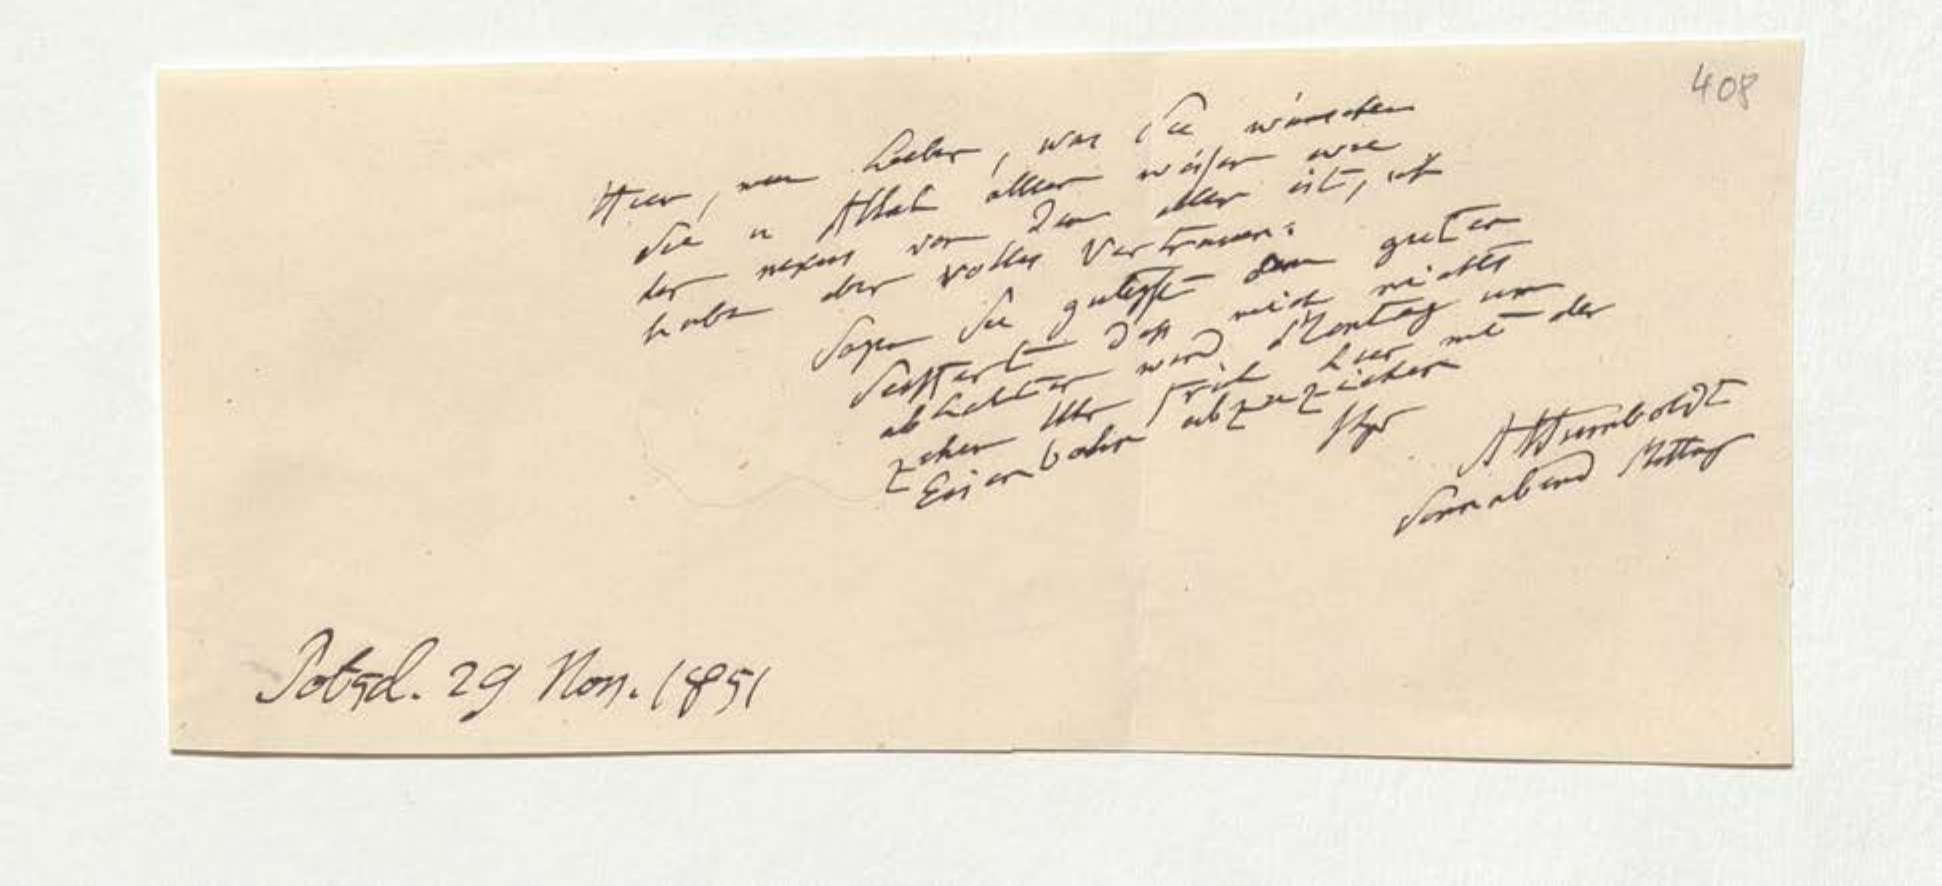 408
Hier, mein Lieber, was Sie wünschen
Sie u Allah allein wissen wie
der nexus von dem allen ist, ich
habe aber volles Vertrauen.
Sagen Sie gütigst dem guten
Seiffert daß mich nichts
abhalten wird, Montag um
zehen Uhr früh hier mit der
Eisenbahn abzuziehen
Ihr
AHumboldt
Sonnabend Mittag
Potsd. 29 Nov. 1851